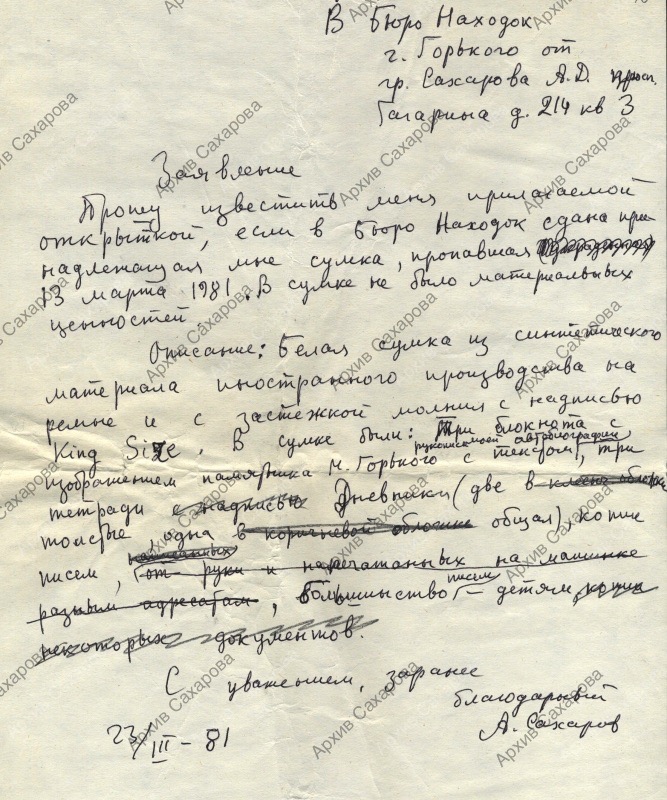 В Бюро Находок
г. Горького от
гр. Сахарова А.Д. просп.
Гагарина д. 214 кв 3
Заявление
Прошу известить меня прилагаемой
открыткой, если в Бюро Находок сдана при-
надлежащая мне сумка, пропавшая
13 марта 1981. В сумке не было материальных
ценностей
Описание: Белая сумка из синтетического
материала иностранного производства на
ремне и с застежкой молния с надписью
King Size. В сумке были: Три блокнота с
рукописной автобиографии,
изображением памятника М. Горького с текстом, три
тетради с надписью Дневники (две в клеенч. обложке
толстые, одна в коричневой обложке общая), копии
напечатанных
писем, (от руки и напечатанных на машинке
разным адресатам, большинство писем – детям, копии
некоторых документов.
С уважением, заранее
благодарный
А. Сахаров
23/III - 81
Архив Сахарова